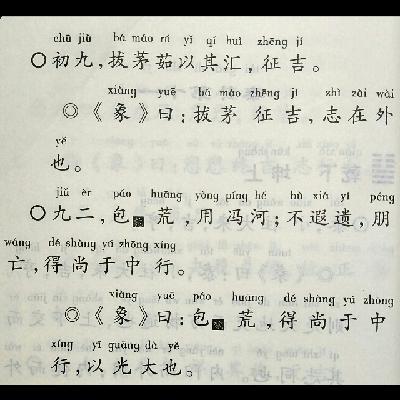 chū jiǔ bá máo rú yǐ qí huì zhēng jí
○初九，拔茅茹以其汇，征吉。
xiàng yuē bá máo zhēng jí zhì zài wài
◎《象》曰：拔茅征吉，志在外
yě
也。
jiǔ èr páo huāng yòng píng hé bù xiá yí péng
○九二，包荒，用冯河；不遐遗，朋
wáng dé shàng yú zhōng xíng
亡，得尚于中行。
xiàng yuē páo huāng dé shàng yú zhōng
◎《象》曰：包荒，得尚于中
xíng yǐ guāng dà yě
行，以光大也。